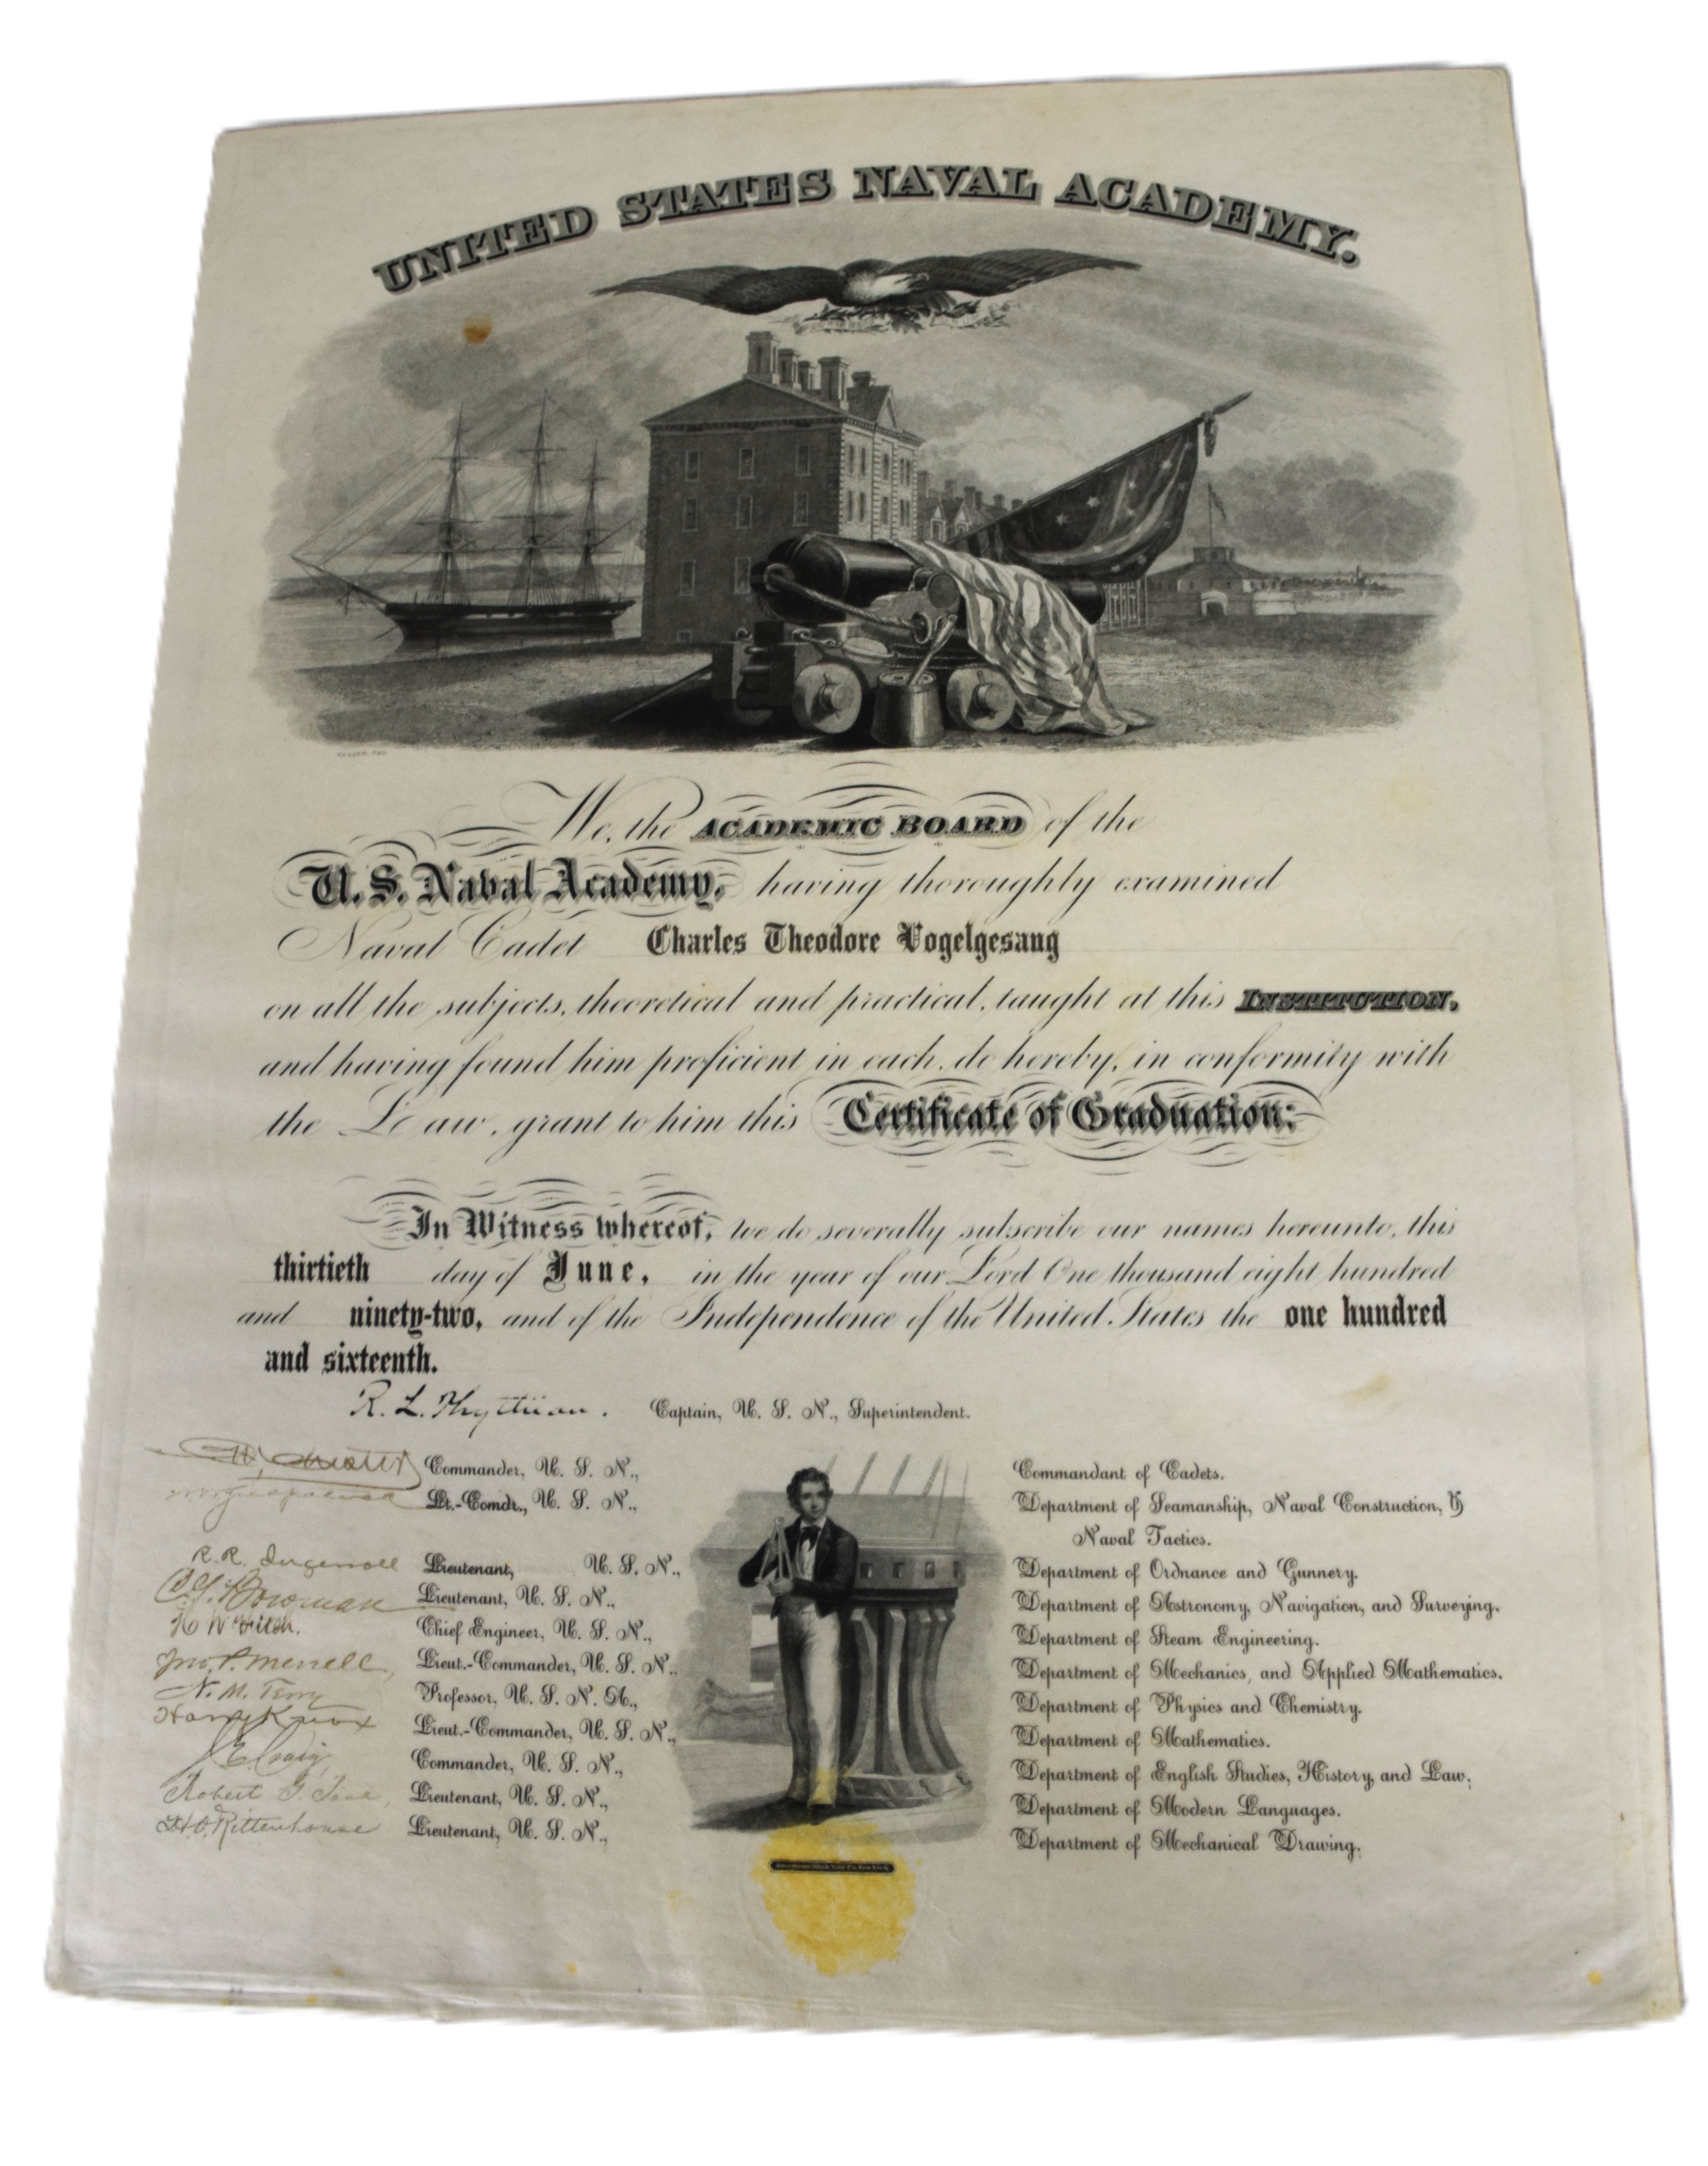 UNITED STATES NAVAL ACADEMY.
We, the ACADEMIC BOARD of the
U. S. Naval Academy, having thoroughly examined
Naval Cadet Charles Theodore Vogelgesang
on all the subjects, theoretical and practical, taught at this INSTITUTION,
and having found him proficient in each, do hereby, in conformity with
the Law, grant to him this Certificate of Graduation:
In Witness whereof, we do severally subscribe our names hereunto, this
thirtieth day of June, in the year of our Lord One thousand eight hundred
and ninety-two, and of the Independence of the United States the one hundred
and sixteenth.
R. L. Phythian. Captain, U. S. N., Superintendent.
Commander, U. S. N., Commandant of Cadets.
Lt.-Comdr., U. S. N., Department of Seamanship, Naval Construction, &
Naval Tactics.
R. R. Ingersoll Lieutenant, U. S. N., Department of Ordnance and Gunnery.
Bowman Lieutenant, U. S. N., Department of Astronomy, Navigation, and Surveying.
H W Fitch. Chief Engineer, U. S. N., Department of Steam Engineering.
Jno. P. Merrell, Lieut.-Commander, U. S. N., Department of Mechanics, and Applied Mathematics.
N. M. Terry Professor, U. S. N. A., Department of Physics and Chemistry.
Harry Knox Lieut.-Commander, U. S. N., Department of Mathematics.
J. E. Craig, Commander, U. S. N., Department of English Studies, History, and Law.
Robert G. Peck, Lieutenant, U. S. N., Department of Modern Languages.
H. O. Rittenhouse Lieutenant, U. S. N., Department of Mechanical Drawing.